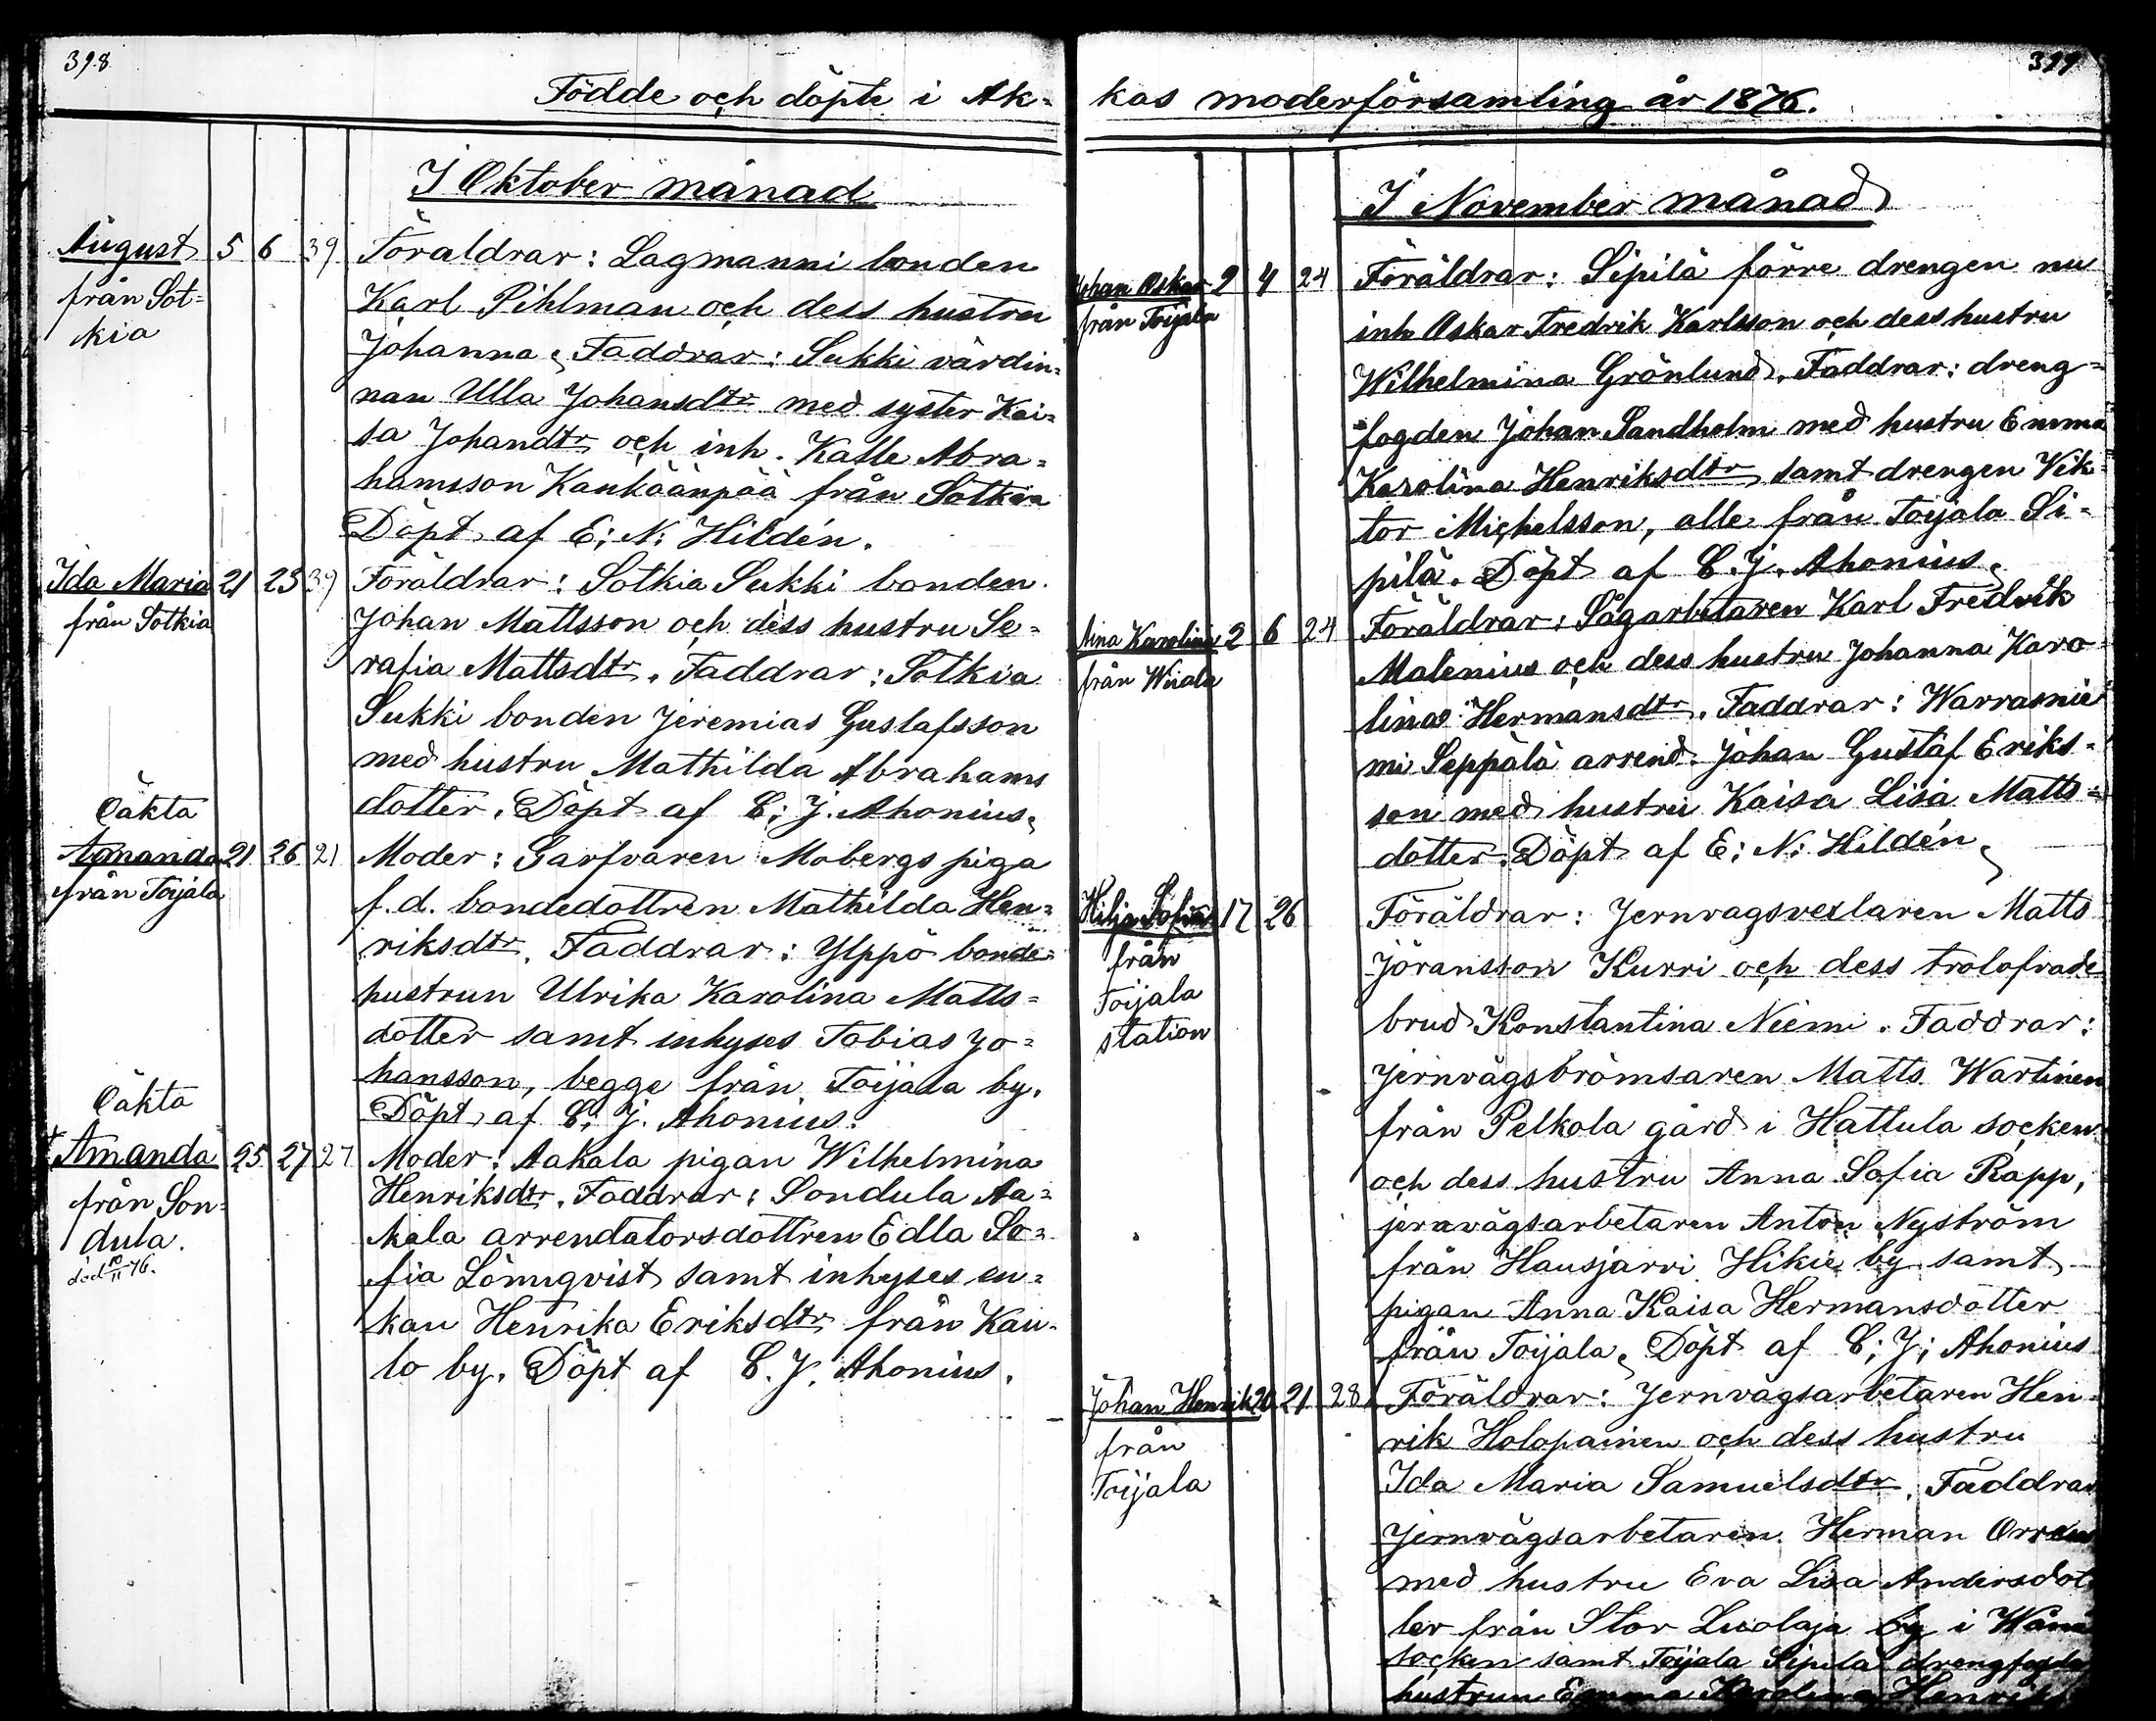 398
Födde och döpte i Ak=
I Oktober månad
August 5 6 39 Föräldrar: Lagmanni bonden
från Sot= Karl Pihlman och dess hustru
kia Johanna. Faddrar: Sukki värdin=
nan Ulla Johansdtr med syster Kai=
sa Johandtr och inh. Kalle Abra=
hamsson Kankäänpää från Sotkia
Döpt af E: N: Hildén.
Ida Maria 21 23 39 Föräldrar: Sotkia Sukki bonden
från Sotkia Johan Mattsson och dess hustru Se=
rafia Mattsdtr. Faddrar: Sotkia
Sukki bonden Jeremias Gustafsson
med hustru Mathilda Abrahams
Oäkta dotter. Döpt af C: J. Ahonius.
Amanda 21 26 21 Moder: Garfvaren Mobergs piga
från Toijala f.d. bondedottren Mathilda Hen=
riksdtr. Faddrar: Ylppö bonde=
hustrun Ulrika Karolina Matts=
dotter samt inhyses Tobias Jo=
hansson, begge från Toijala by.
Oäkta Döpt af C: J. Ahonius.
+ Amanda 25 27 27 Moder: Aakala pigan Wilhelmina
från Son= Henriksdtr. Faddrar: Sondula Aa=
dula. kala arrendatorsdottren Edla So=
död 10/11 76. fia Lönnqvist samt inhyses en=
kan Henrika Eriksdtr från Kau=
lo by. Döpt af C. J. Ahonius.
399
kas moderförsamling år 1876.
I November månad
Johan Oskar 2 4 24 Föräldrar: Sipilä förre drengen nu
från Toijala inh Oskar Fredrik Karlsson och dess hustru
Wilhelmina Grönlund. Faddrar: dreng=
fogden Johan Sandholm med hustru Emma
Karolina Henriksdtr samt drengen Vik=
tor Michelsson, alle från Toijala Si=
pilä. Döpt af C. J. Ahonius.
Aina Karolina 2 6 24 Föräldrar: Sågarbetaren Karl Fredrik
från Wiiala Malenius och dess hustru Johanna Karo
lina Hermansdtr. Faddrar: Warrasnie
mi Seppälä arrend. Johan Gustaf Eriks=
son med hustru Kaisa Lisa Matts=
dotter. Döpt af E: N: Hildén.
Hilja Sofia 17 26 Föräldrar: Jernvagsvexlaren Matts
från Jöransson Kurri och dess trolofvade
Toijala brud Konstantina Niemi. Faddrar:
station Jernvägsbromsaren Matts Wartinen
från Pelkola gård i Hattula socken
och dess hustru Anna Sofia Rapp,
jernvägsarbetaren Anton Nyström
från Hausjärvi Hikiä by samt
pigan Anna Kaisa Hermansdotter
från Toijala. Döpt af C; J; Ahonius
Johan Henrik 20 21 28 Föräldrar: Jernvägsarbetaren Hen=
från rik Holopainen och dess hustru
Toijala Ida Maria Samuelsdtr. Faddrar
Jernvägsarbetaren Herman
med hustru Eva Lisa Andersdot
ter från Stor Luolaja by i
socken samt Toijala Sipilä drengfogde
hustrun Emma Karolina Henriks